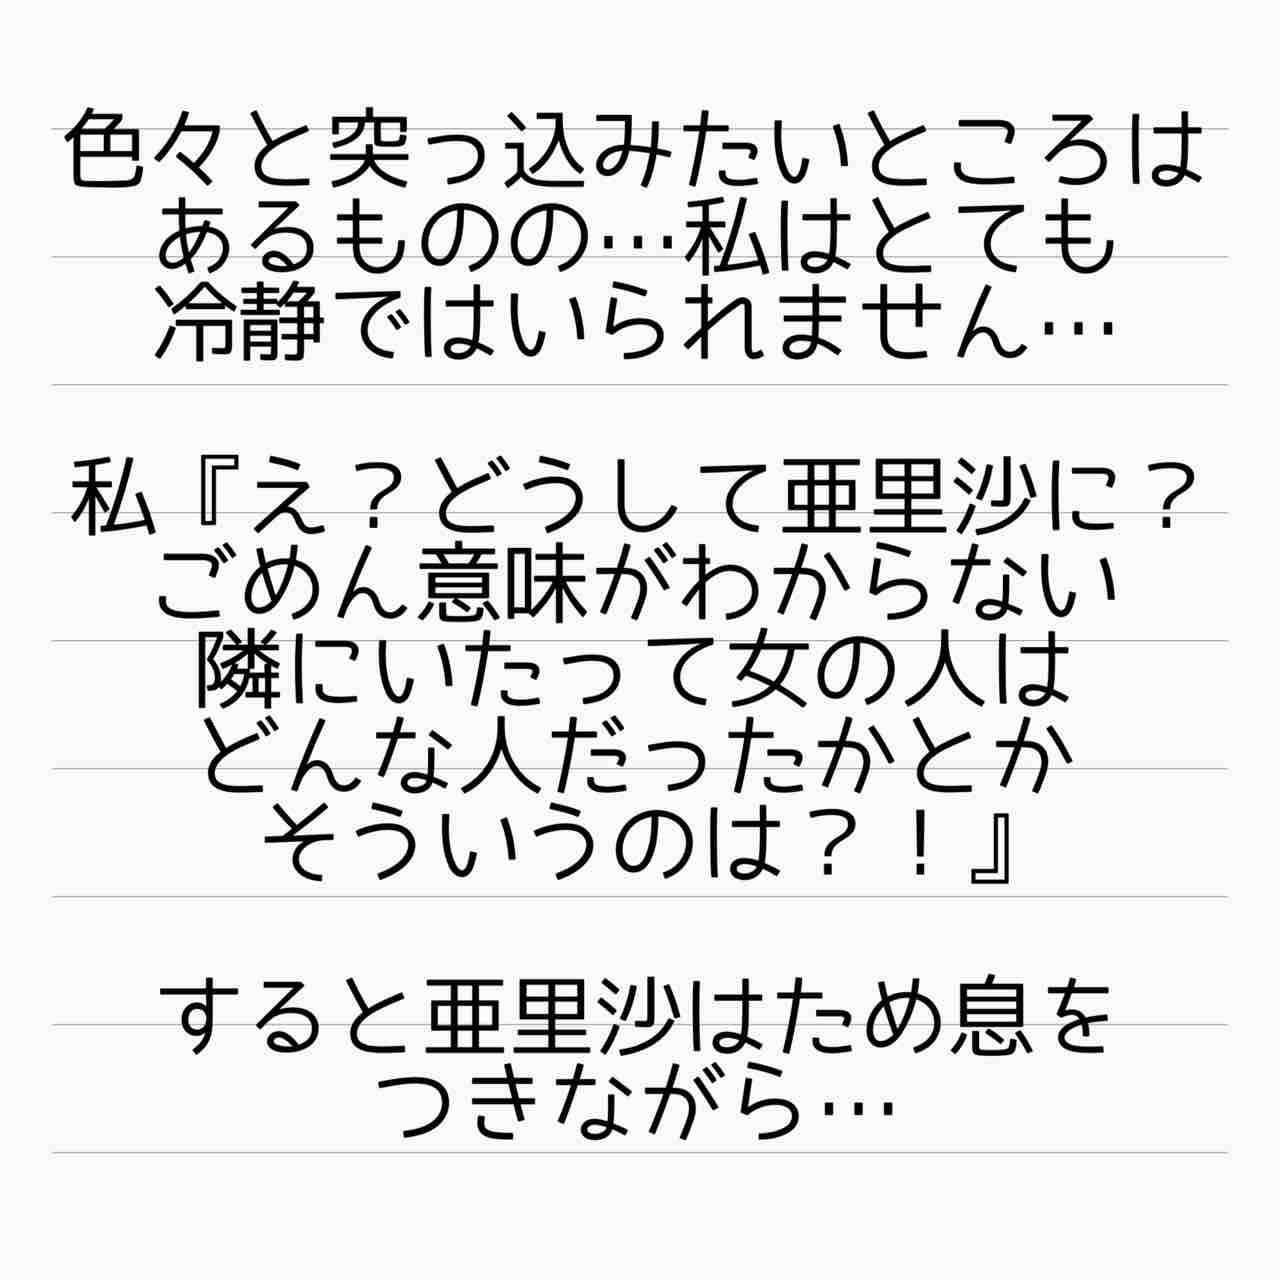 色々と突っ込みたいところは
あるものの…私はとても
冷静ではいられません…
私『え？どうして亜里沙に？
ごめん意味がわからない
隣にいたって女の人は
どんな人だったかとか
そういうのは？！』
すると亜里沙はため息を
つきながら…